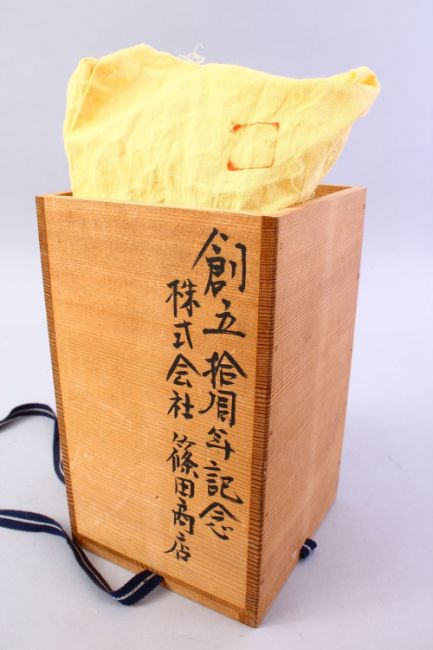 創立拾周年記念
株式会社 篠田商店